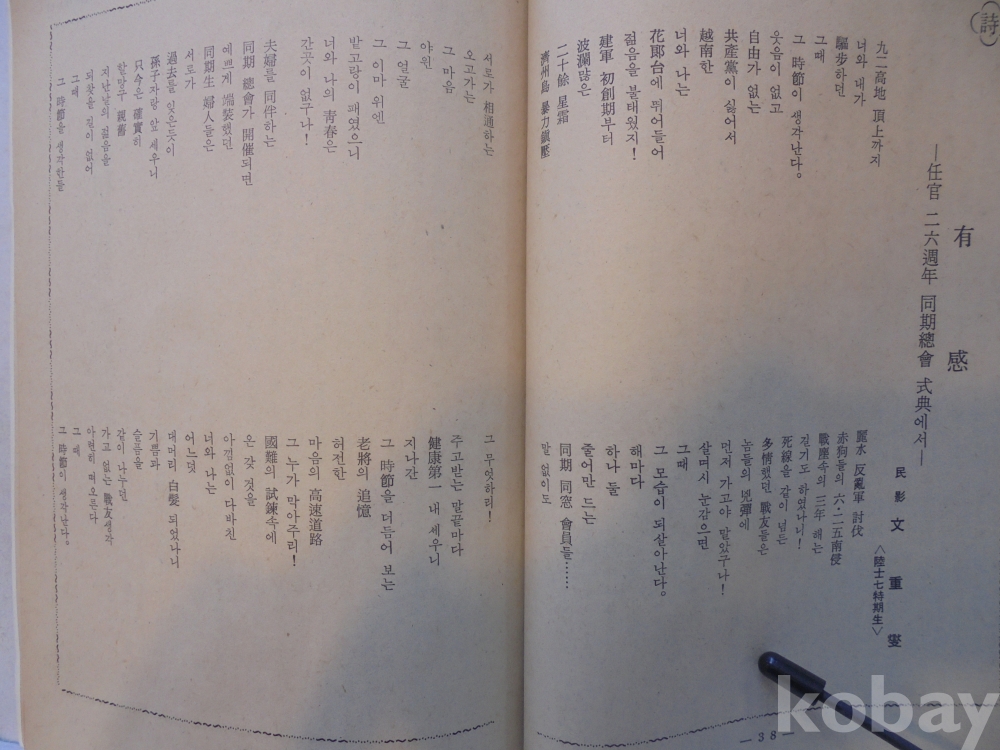 詩
有感
―任官 二六週年 同期總會 式典에서―
民影 文重燮
<陸士七特期生>
九二高地 頂上까지
너와 내가
驅步하던
그때
그 時節이 생각난다。
웃음이 없고
自由가 없는
共産黨이 싫어서
越南한
너와 나는
花郞台에 뛰어들어
젊음을 불태웠지!
建軍 初創期부터
波瀾많은
二十餘 星霜
濟州島 暴力鎭壓
麗水 反亂軍 討伐
赤狗들의 六・二五南侵
戰塵속의 三年 해는
길기도 하였나니!
死線을 같이 넘든
多情했던 戰友들은
놈들의 兇彈에
먼저 가고야 말았구나!
살며시 눈감으면
그때
그 모습이 되살아난다。
해마다
하나 둘
줄어만 드는
同期 同窓 會員들……
말 없이도
서로가 相通하는
오고가는
그 마음
야윈
그 얼굴
그 이마 위엔
밭고랑이 패였으니
너와 나의 靑春은
간곳이 없구나!
夫婦를 同伴하는
同期 總會가 開催되면
예쁘게 端裝했던
同期生 婦人들은
서로가
過去를 잊은듯이
孫子자랑 앞 세우니
只今은 確實히
할말무 親舊
지난날의 젊음을
되찾을 길이 없어
그때
그 時節을 생각한들
그 무엇하리!
주고받는 말끝마다
健康第一 내 세우니
지나간
그 時節을 더듬어 보는
老將의 追憶
허전한
마음의 高速道路
그 누가 막아주리!
國難의 試鍊속에
온 갖 것을
아낌없이 다바친
너와 나는
어느덧
대머리 白髮 되었나니
기쁨과
슬픔을
같이 나누던
가고 없는 戰友생각
아련히 떠오른다
그때
그 時節이 생각난다。
―38―
kobay